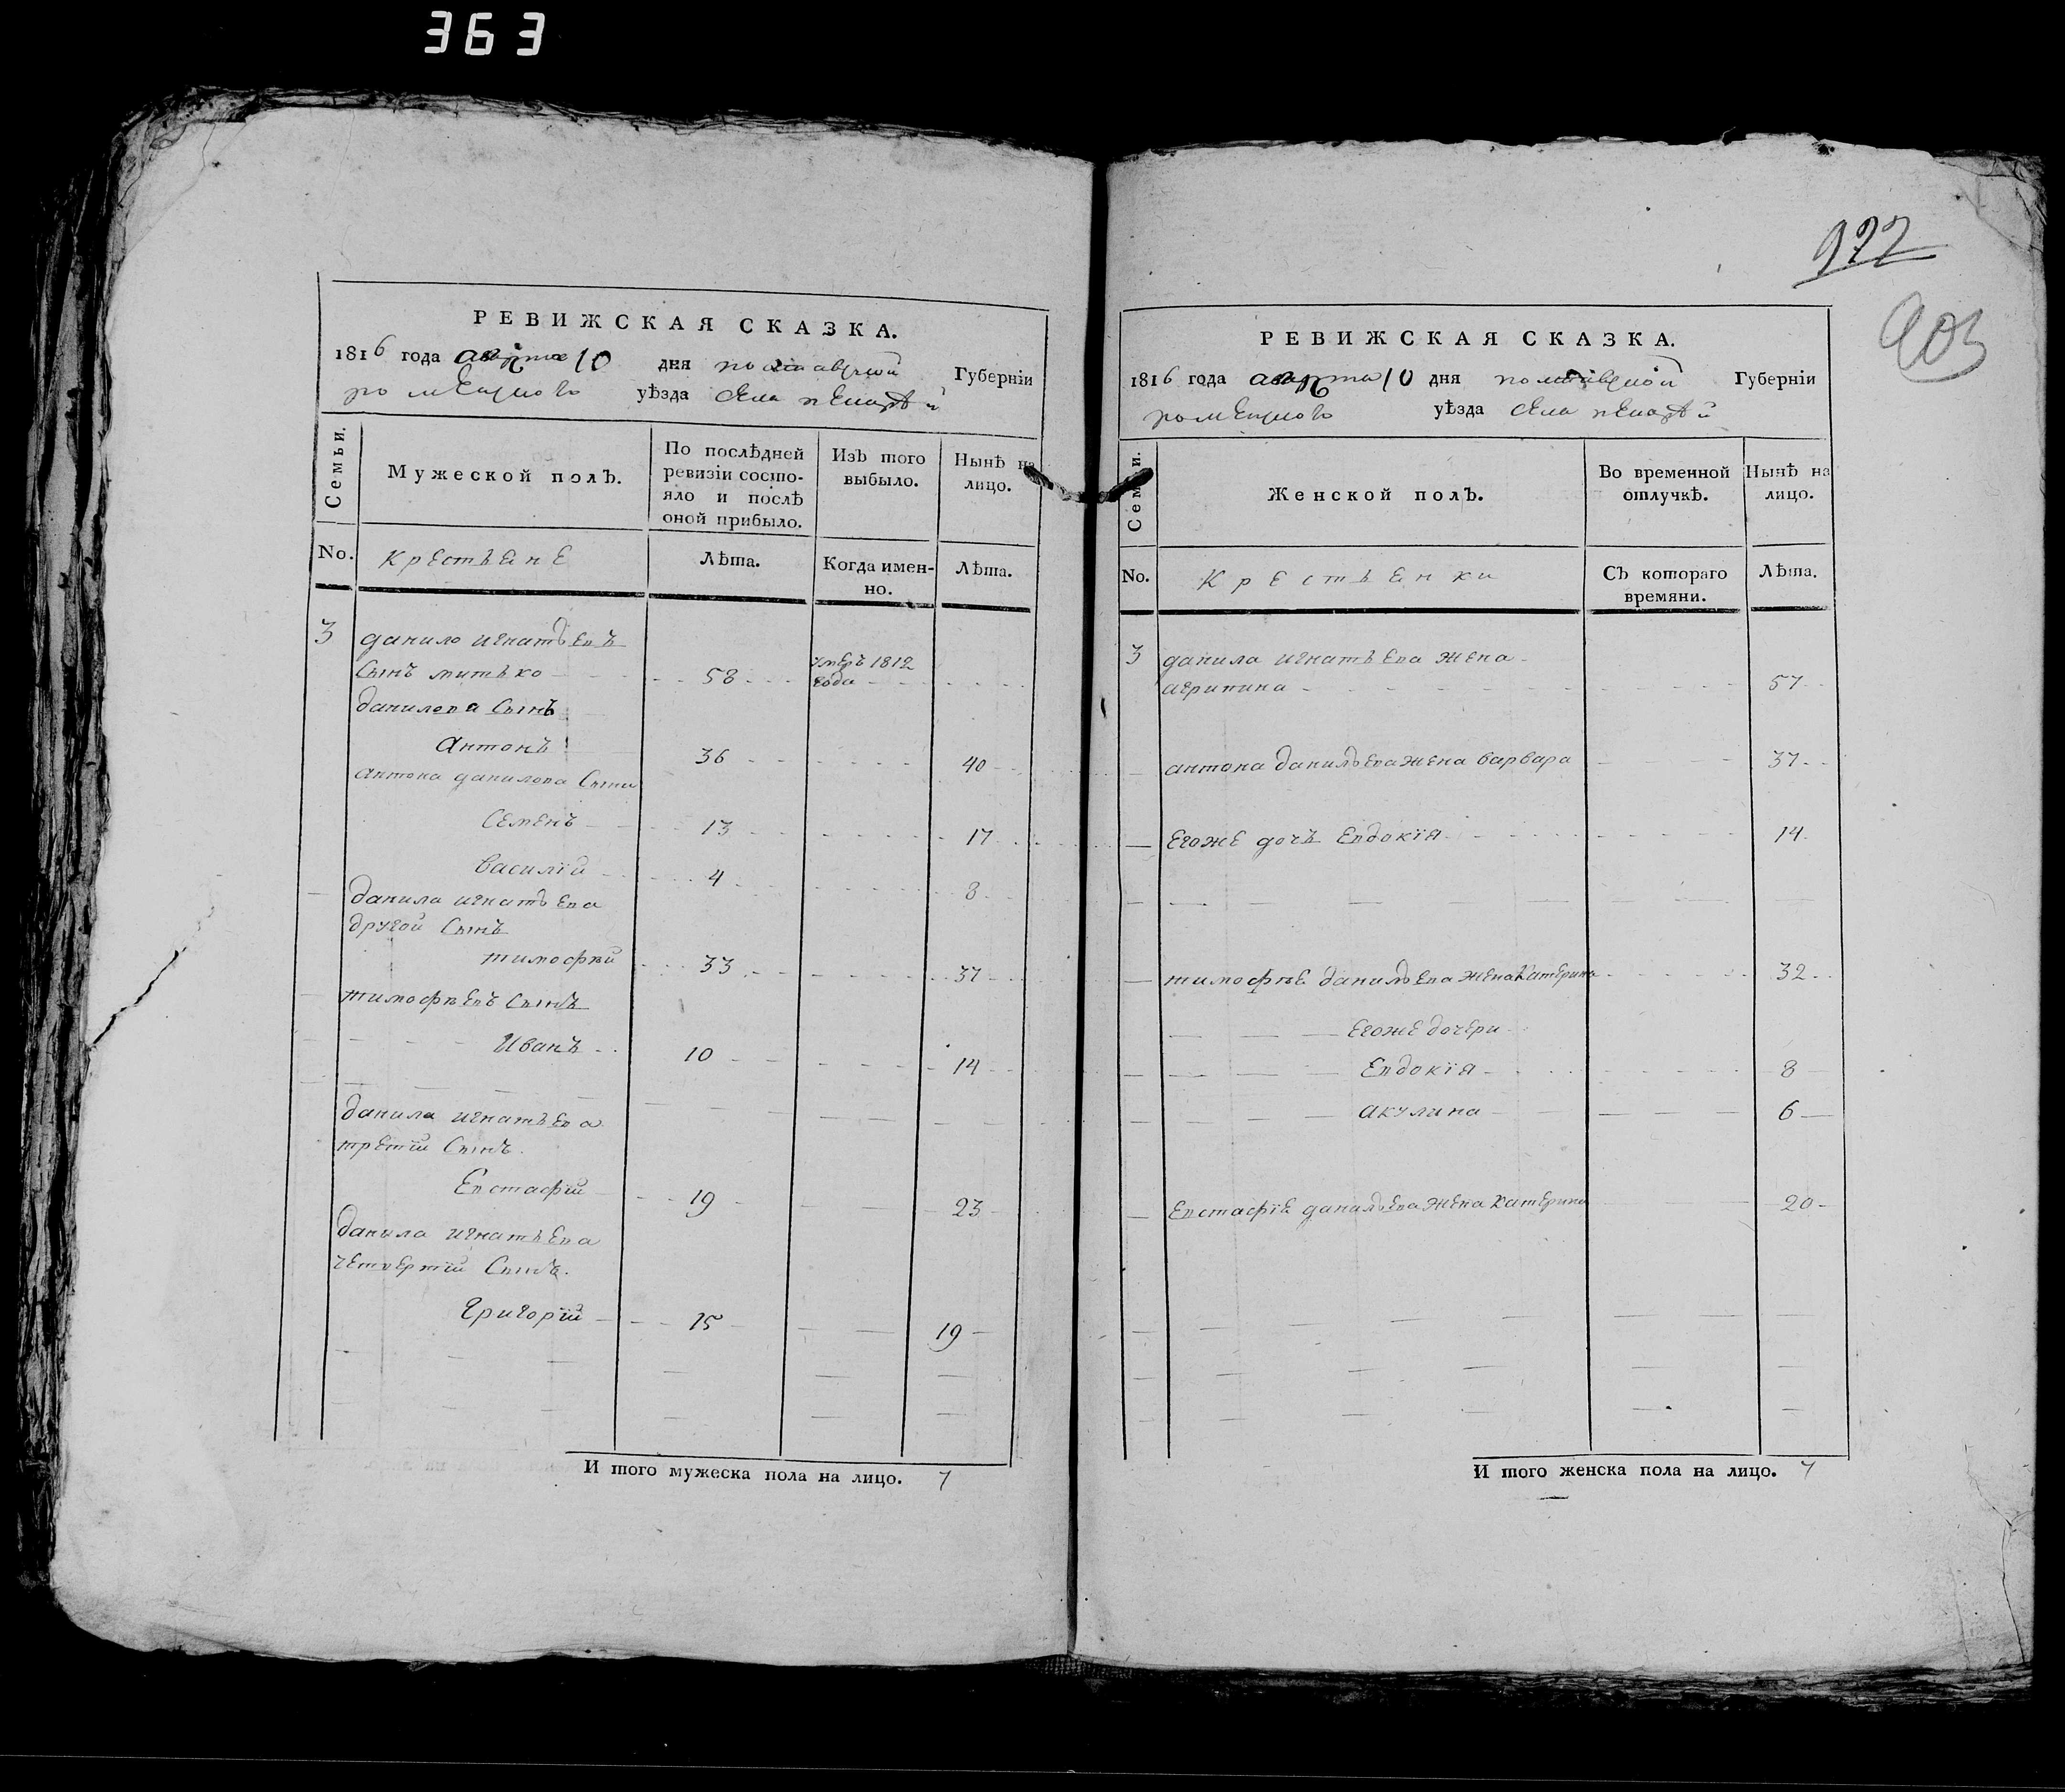 363
РЕВИЖСКАЯ СКАЗКА.
1816 года марта 10 дня полтавской Губерніи
роменского уѣзда села
Семьи.
Мужеской полъ.
По послѣдней ревизіи состояло и послѣ оной прибыло.
Изъ того выбыло.
Нынѣ на лицо.
No.
крестьене
Лѣта.
Когда именно.
Лѣта.
3 данило игнатьевъ
сынъ митько 58 умеръ 1812 года
данилова сынъ
Антонъ 36 40
антона данилова сыни
Семенъ 13 17
василїй 4 8
данила игнатьева
другой сынъ
тимофѣй 33 37
тимофѣевъ сынъ
Иванъ 10 14
данила игнатьева
третїй сынъ.
Евстафїй 19 23
данила игнатьева
четвертїй сынъ.
Григорїй 15 19
И того мужеска пола на лицо. 7
922
903
РЕВИЖСКАЯ СКАЗКА.
1816 года марта 10 дня полтавской Губерніи
роменского уѣзда села
Семьи.
Женской полъ.
Во временной отлучкѣ.
Нынѣ на лицо.
No.
Крестьенки
Съ котораго времяни.
Лѣта.
3 данила игнатьева жена
агрипина 57
антона данильева жена варвара 37
егоже дочь евдокїя 14
тимофѣе данильева жена катерина 32
егоже дочери
Евдокїя 8
акулина 6
Евстафїе данильева жена катерина 20
И того женска пола на лицо. 7